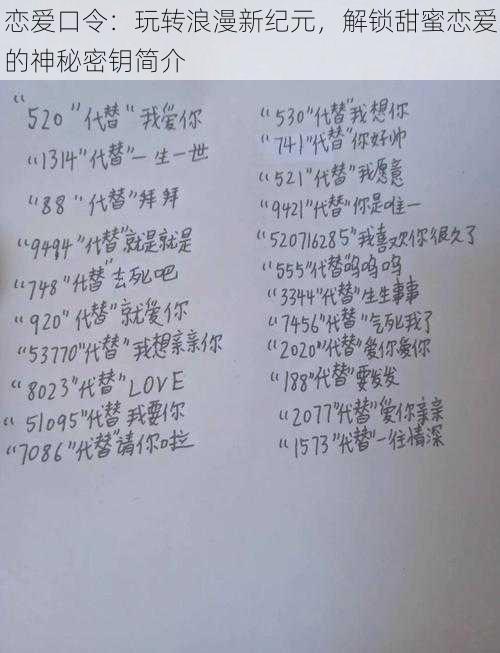 恋爱口令：玩转浪漫新纪元，解锁甜蜜恋爱
的神秘密钥简介
“520”代替“我爱你
“1314”代替”一生一世
“88”代替”拜拜
“9494”代替”就是就是
“748”代替”去死吧
“920”代替”就爱你
“53770”代替”我想亲亲你
“8023”代替”LOVE
“51095”代替”我要你
“7086”代替”请你啦
“530”代替”我想你
“741”代替”你好帅
“521”代替”我愿意
“9421”代替”你是唯一
“520716285”我喜欢你很久了
“555”代替”呜呜呜
“3344”代替”生生事事
“7456”代替”气死我了
“2020”代替”爱你爱你
“188”代替”要发发
“2077”代替”爱你亲亲
“1573”代替”一往情深